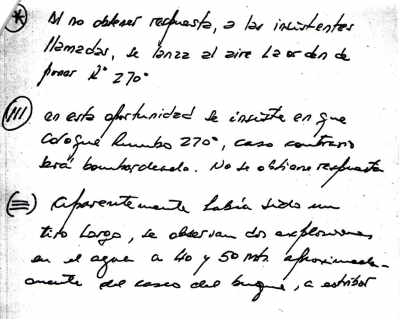 * Al no obtener respuesta, a las insistentes
llamadas, se lanza al aire la orden de
poner Rº 270º
III en esta oportunidad se insiste en que
coloque Rumbo 270º, caso contrario
será bombardeado. No se obtiene respuesta
≡ Aparentemente había sido un
tiro largo, se observan dos explosiones
en el agua a 40 y 50 mts. aproximada-
mente del casco del buque, a estribor